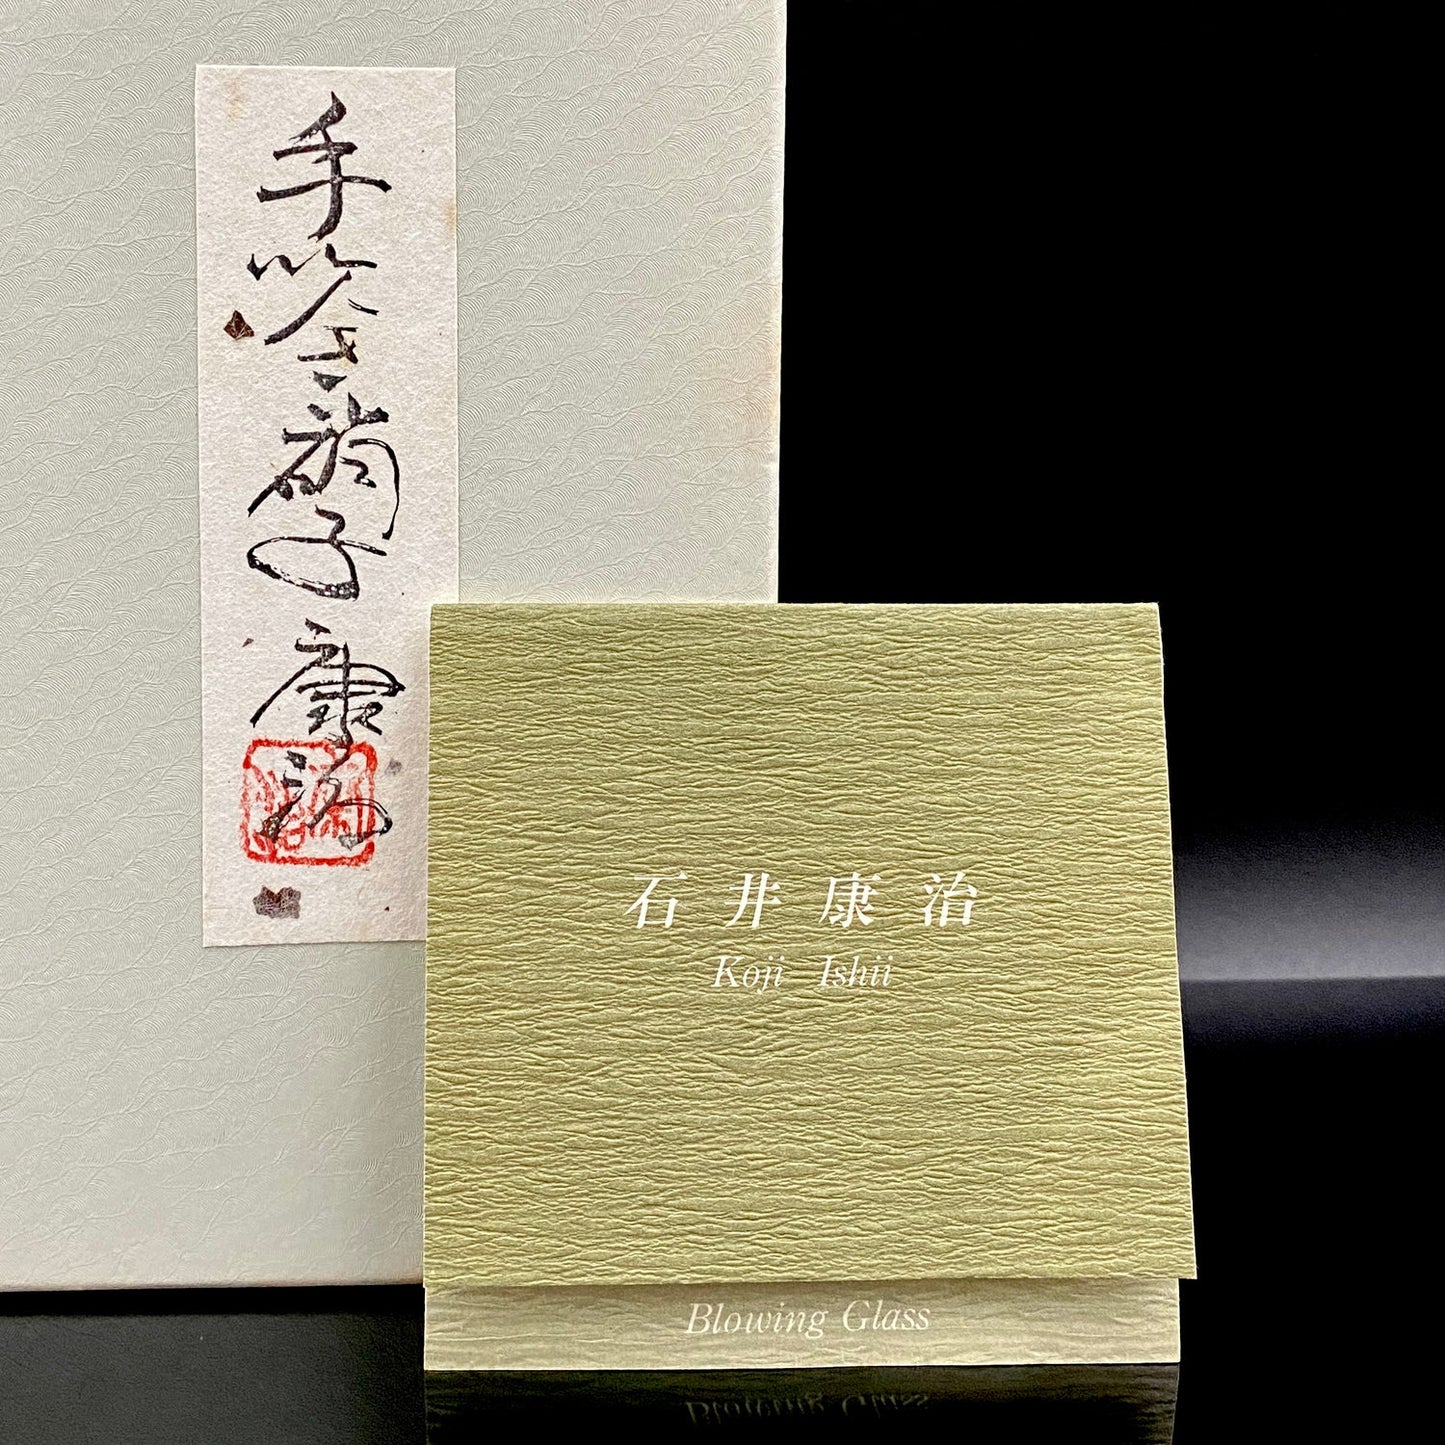 手吹き硝子 康治
石井康治
Koji Ishii
Blowing Glass